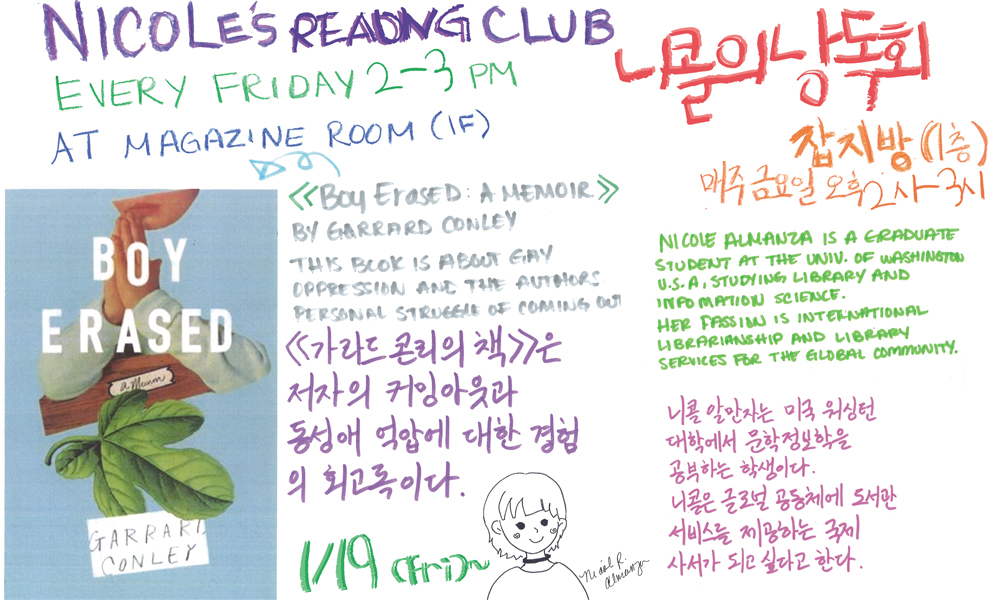 NICOLE'S READING CLUB
EVERY FRIDAY 2-3 PM
AT MAGAZINE ROOM (1F)
니콜의 낭독회
잡지방(1층)
매주 금요일 오후 2시-3시
BOY
ERASED
a Memoir
GARRARD
CONLEY
《BOY ERASED: A MEMOIR》
BY GARRARD CONLEY
THIS BOOK IS ABOUT GAY
OPPRESSION AND THE AUTHORS
PERSONAL STRUGGLE OF COMING OUT
《가라드 콘리의 책》은
저자의 커밍아웃과
동성애 억압에 대한 경험
의 회고록이다.
1/19 (Fri)~
Nicole R.
Almanza
NICOLE ALMANZA IS A GRADUATE
STUDENT AT THE UNIV. OF WASHINGTON
U.S.A, STUDYING LIBRARY AND
INFOMATION SCIENCE.
HER PASSION IS INTERNATIONAL
LIBRARIANSHIP AND LIBRARY
SERVICES FOR THE GLOBAL COMMUNITY.
니콜 알만자는 미국 워싱턴
대학에서 문학정보학을
공부하는 학생이다.
니콜은 글로벌 공동체에 도서관
서비스를 제공하는 국제
사서가 되고 싶다고 한다.